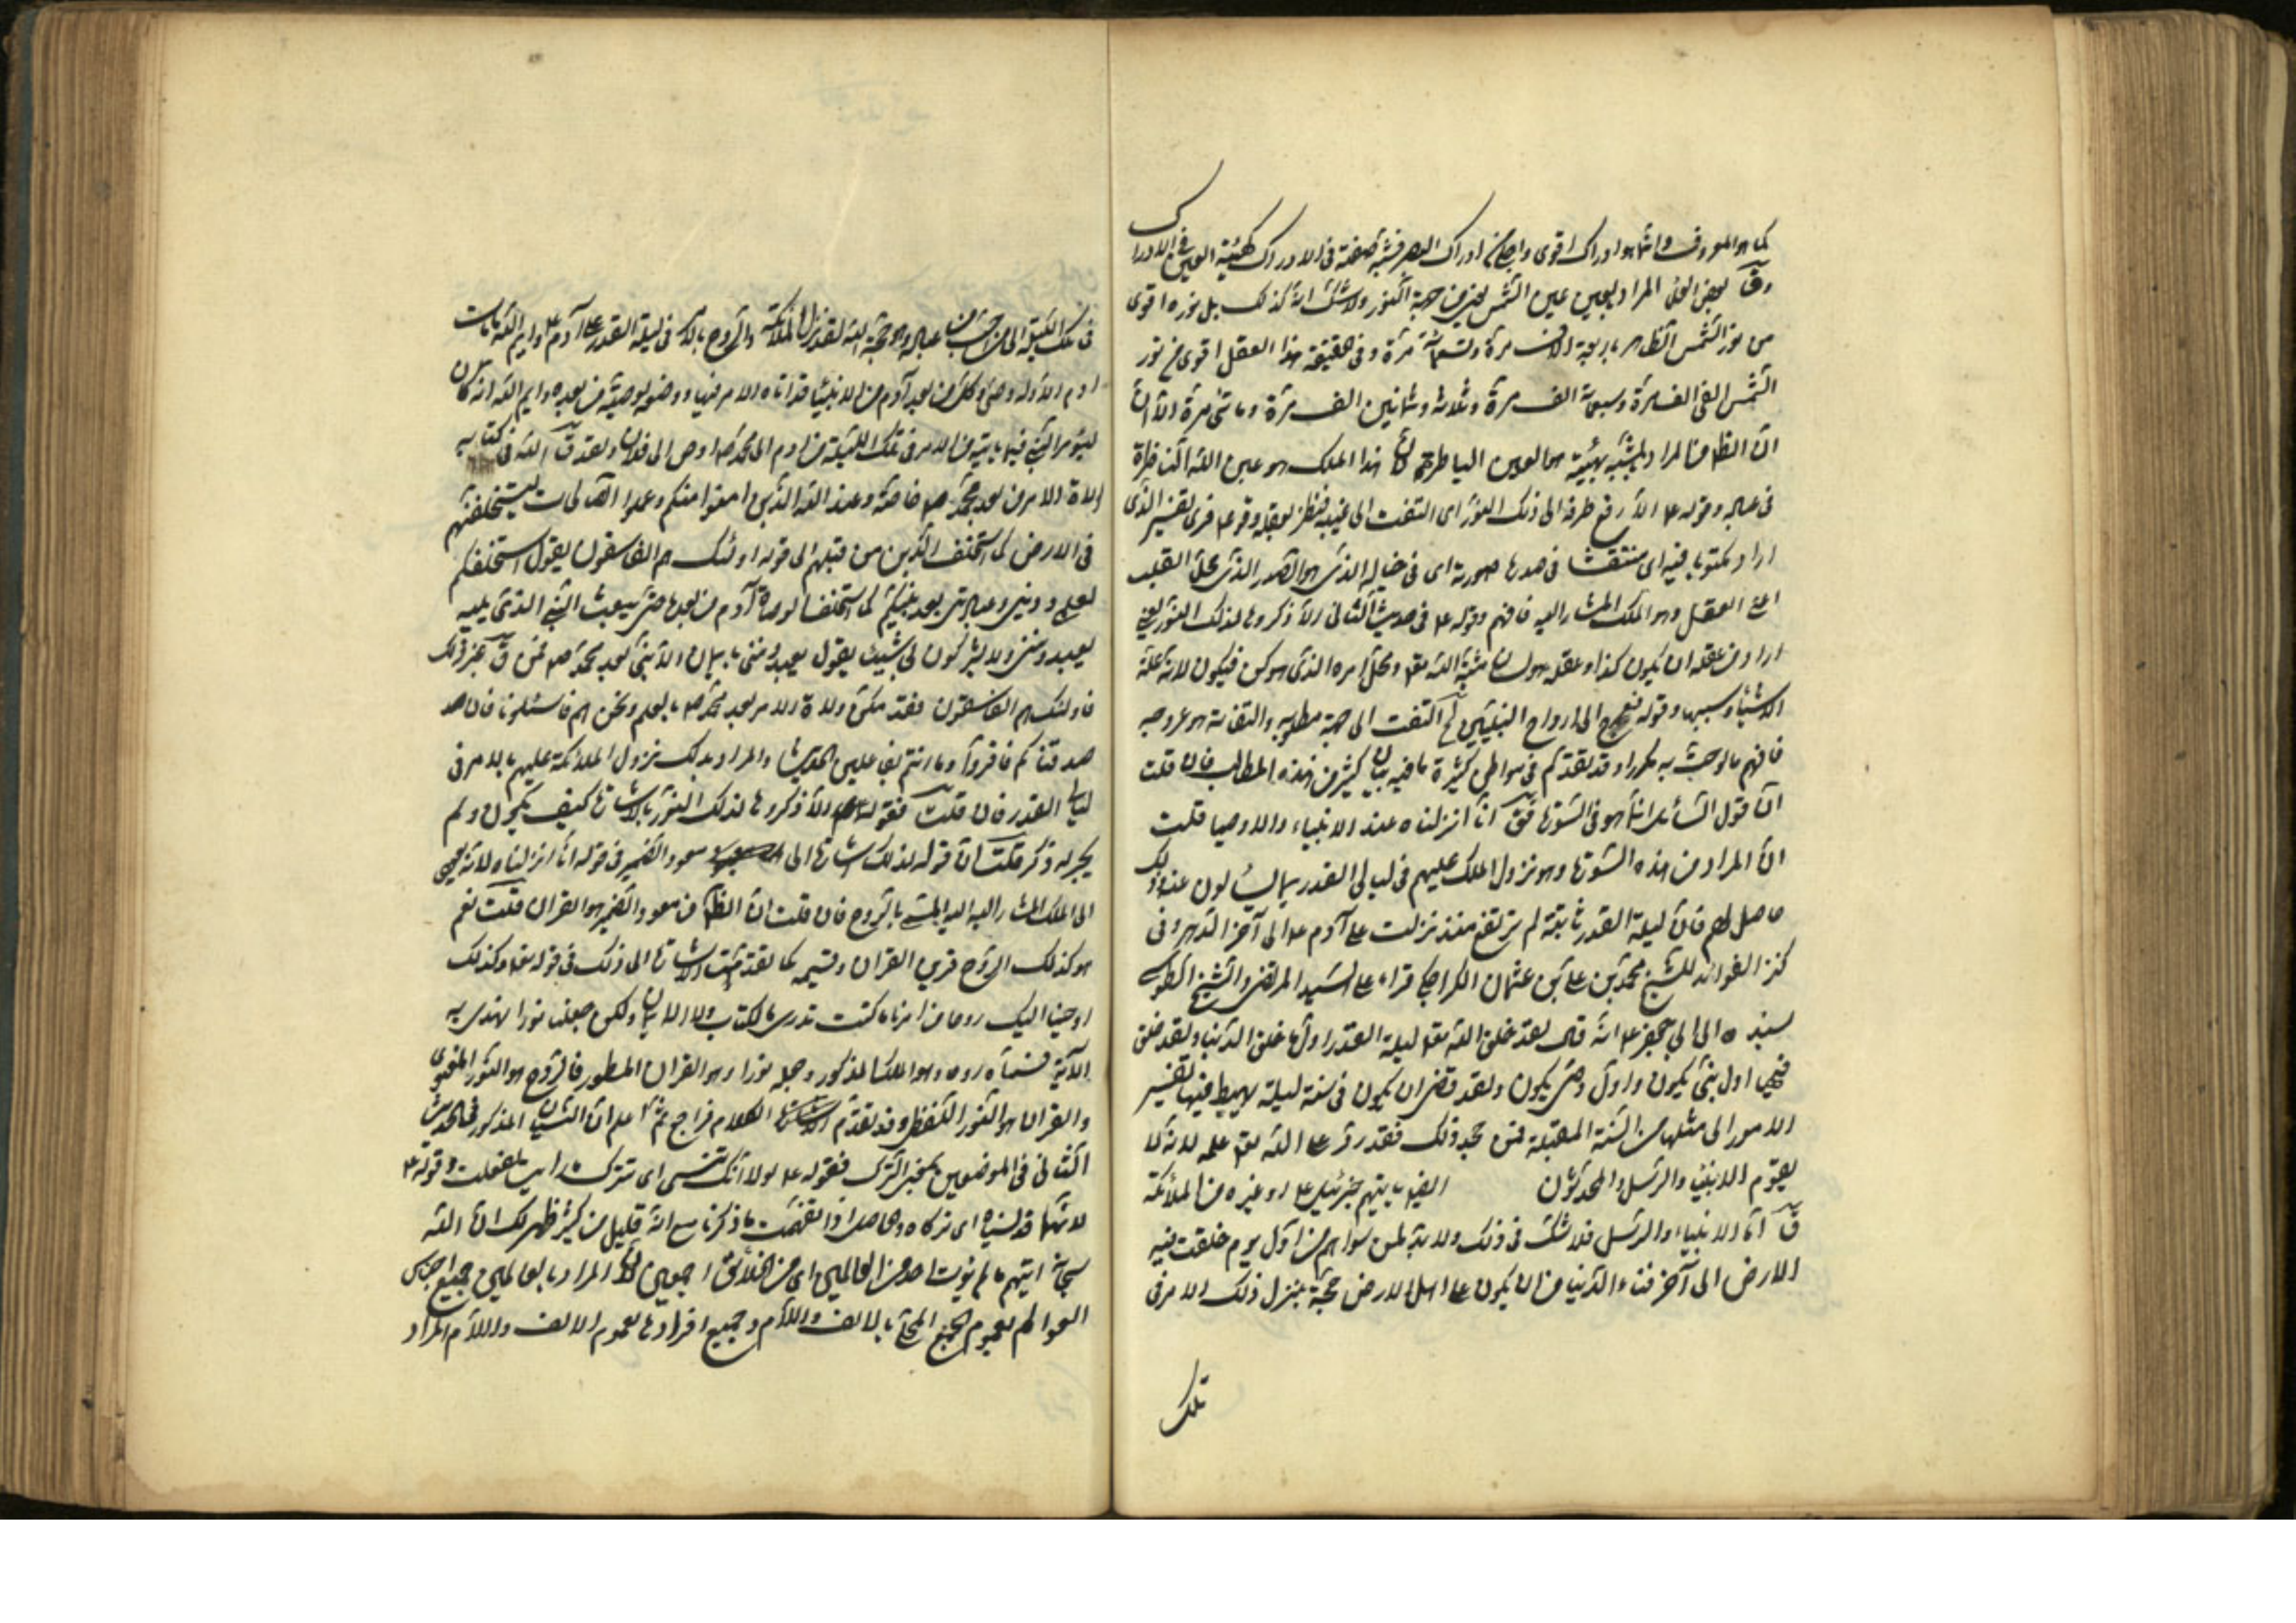 كما هو المعروف وانما هو ادراك اقوى واجلى من ادراك البصر فشبه صفته في الادراك كهيئة العين في الادراك
وقال بعض العلماء المراد بالعين عين الشمس يعني من جهة النور ولا شك انه كذلك بل نوره اقوى
من نور الشمس الظاهر باربعة الاف مرة وتسعمائة مرة وفي حقيقة هذا العقل اقوى من نور
الشمس الفي الف مرة وسبعمائة الف مرة وثلاثة وثمانين الف مرة ومائتي مرة الا ان
ان الظاهر من المراد بالمشبه بهيئته هو العين الباصرة لان هذا الملك هو عين الله الناظرة
في عباده وقوله ع الا رفع طرفه الى ذلك النور اى التفت الى غيبه فنظر بعقله وقرء فرى تفسير الذى
اراد مكتوبا فيه اى منتقشا في صدرها صورته اى في خياله الذى هو الصدر الذى محل القلب
اعنى العقل وهو الملك المشار اليه فافهم وقوله ع في حديث الثانى الا ذكروها لذلك النور يعنى
اراد من عقله ان يكون كذا وعقله هو لسان مشية الله تعالى ومحل امره الذى هو كن فيكون لانه علة
الاشياء وسببها وقوله فتعرج الى ارواح النبيين اى التفت الى جهة مطلوبه والتفاته هو عروجه
فافهم ما لوحت به مكررا وقد تقدم في مواطن كثيرة ما فيه بيان كثير من هذه المطالب فان قلت
ان قول السائل انما هو في السورة فقال انا انزلناه عند الانبياء والاوصياء قلت
ان المراد من هذه السورة وهو نزول الملك عليهم في ليالى القدر بما يسئلون عنه وذلك
حاصل لهم فان ليلة القدر ثابتة لم ترتفع منذ نزلت على آدم ع الى آخر الدهر وفى
كنز الفوائد للشيخ محمد بن على بن عثمان الكراجكى قراء على السيد المرتضى والشيخ الطوسى
بسنده الى ابى جعفر ع انه قال لقد خلق الله تعالى ليلة القدر اول ما خلق الدنيا ولقد خلق
فيها اول نبى يكون واول وصى يكون ولقد قضى ان يكون في سنة ليلة يهبط فيها تفسير
الامور الى مثلها من السنة المقبلة فمن جحد ذلك فقد رد على الله تعالى علمه لانه لا
يقوم الانبياء والرسل والمحدثون ايضا ياتيهم جبرئيل ع او غيره من الملائكة
قال اما الانبياء والرسل فلا شك في ذلك ولا بد لمن سواهم من اول يوم خلقت فيه
الارض الى آخر فناء الدنيا من ان يكون على اهل الارض حجة ينزل ذلك الامر في
تلك
في تلك الليلة الى من احب من عباده وهو الحجة ايم الله لقد نزل الملائكة والروح بالامر في ليلة القدر على آدم ع وايم الله ما مات
ادم الا وله وصى وكل من بعد آدم من الانبياء قد اتاه الامر فيها ووضعه لوصيه من بعده وايم الله انه كان
ليؤمر النبى فيما ياتيه من الامر في تلك الليلة من ادم الى محمد ص اوص الى فلان ولقد قال الله في كتابه
لولاة الامر من بعد محمد ص خاصة وعد الله الذين امنوا منكم وعملوا الصالحات ليستخلفنهم
في الارض كما استخلف الذين من قبلهم الى قوله اولئك هم الفاسقون يقول استخلفكم
لعلمى ودينى وعبادتى بعد نبيكم كما استخلف وصاة آدم من بعده حتى يبعث النبى الذى يليه
يعبدوننى ولا يشركون بى شيئا يقول يعبدوننى بايمان الا نبى بعد محمد ص فمن قال غير ذلك
فاولئك هم الفاسقون فقد مكن ولاة الامر بعد محمد ص بالعلم ونحن هم فاسئلونا فان صد
صدقناكم فاقروا وما انتم بفاعلين الحديث والمراد بذلك نزول الملائكة عليهم بالامر في
ليالى القدر فان قلت فقوله الا ذكروها لذلك النور بالاشارة كيف يكون ولم
يجر له ذكر قلت ان قوله لذلك اشارة الى معود الضمير في قوله انا انزلناه لانه يعنى
الى الملك المشار اليه المسمى بالروح فان قلت ان الظاهر من معود الضمير هو القران قلت نعم
هو كذلك الروح قرين القران وقسيمه كما تقدمت الاشارة الى ذلك في قوله تعالى وكذلك
اوحينا اليك روحا من امرنا ما كنت تدرى ما الكتاب ولا الايمان ولكن جعلناه نورا نهدى به
الاية فسماه روحا وهو الملك المذكور وجعله نورا وهو القران المسطور فالروح هو النور المعنوى
والقران هو النور اللفظى وقد تقدم الكلام فراجع ثم اعلم ان النسيان المذكور في الحديث
الثانى في الموضعين بمعنى الترك فقوله ع لولا انك تنسى اى تترك ما رايت لفعلت وقوله ع
لانها قد نسياه اى تركاه وهى حاصله اذا تفهمت ما ذكرنا مع انه قليل من كثير ظهر لك ان الله
سبحانه اتيهم ما لم يؤت احدا من العالمين اى من الخلائق اجمعين لان المراد بالعالمين جميع اجزاء
العوالم لعموم الجمع المحلى بالالف واللام وجميع افرادها لعموم الالف واللام المراد